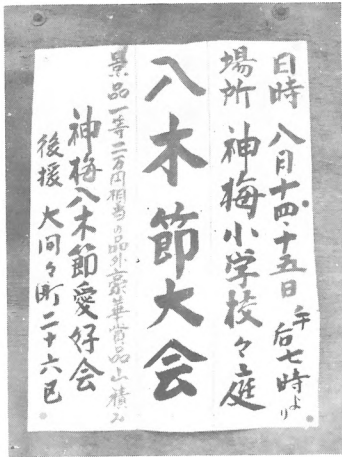 日時 八月十四・十五日 午后七時より
場所 神梅小学校々庭
八木節大会
景品一等二万円相当の品外豪華賞品山積み
神梅八木節愛好会
後援 大间々町二十六